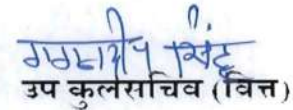 सिंह
उप कुलसचिव (वित्त)